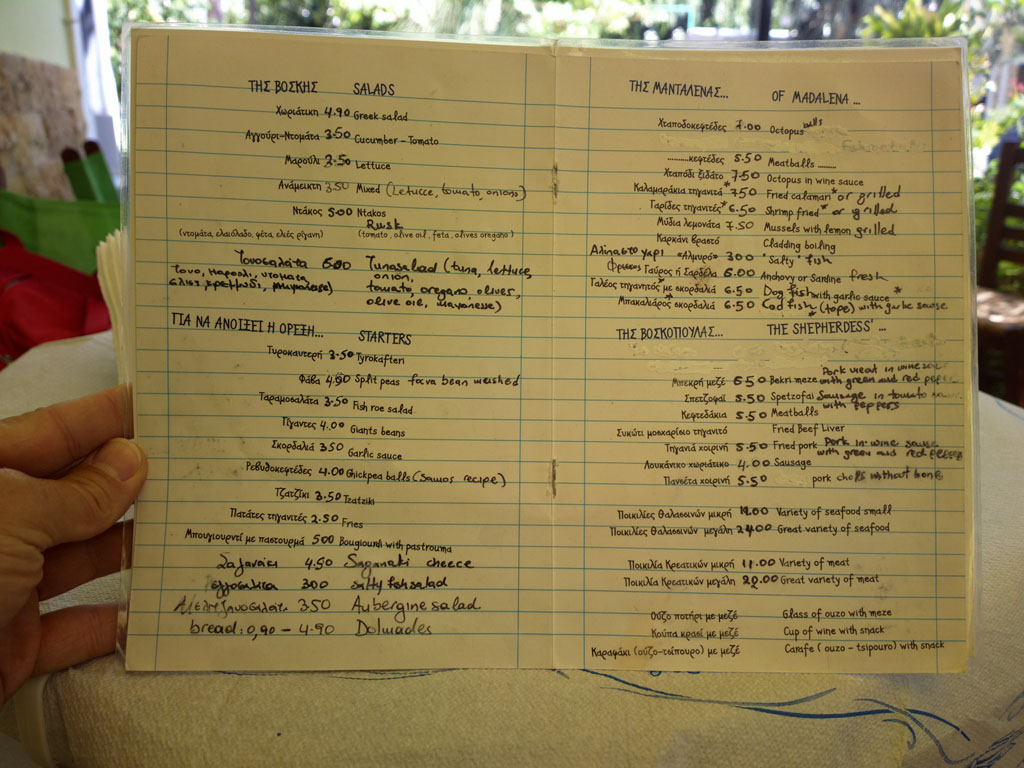 ΤΗΣ ΒΟΣΚΗΣ SALADS
Χωριάτικη 4.90 Greek salad
Αγγούρι-Ντομάτα 3.50 Cucumber - Tomato
Μαρούλι 2.50 Lettuce
Ανάμεικτη 3.50 Mixed (Letucce, tomato, onions)
Ντάκος 5.00 Ntakos
Rusk
(ντομάτα, ελαιόλαδο, φέτα, ελιές ρίγανη) (tomato, olive oil, feta, olives oregano)
Τονοσαλάτα 6.00 Tunasalad (tuna, lettuce,
τονο, μαρουλι, ντοματα onion,
ελιες, κρεμμυδι, tomato, oregano olives,
olive oil, mayonese)
ΓΙΑ ΝΑ ΑΝΟΙΞΕΙ Η ΟΡΕΞΗ... STARTERS
Τυροκαυτερή 3.50 Tyrokafteri
Φάβα 4.00 Split peas fava bean meshed
Ταραμοσαλάτα 3.50 Fish roe salad
Γίγαντες 4.00 Giants beans
Σκορδαλιά 3.50 Garlic sauce
Ρεβυθοκεφτέδες 4.00 Chickpea balls (Samos recipe)
Τζατζίκι 3.50 Tzatziki
Πατάτες τηγανιτές 2.50 Fries
Μπουγιουρντί με παστουρμά 5.00 Bougiourdi with pastrouma
Σαγανάκι 4.50 Saganaki cheece
300 salty fish salad
3.50 Aubergine salad
bread: 0,90 - 4.90 Dolmades
ΤΗΣ ΜΑΝΤΑΛΕΝΑΣ... OF MADALENA ...
Χταποδοκεφτέδες 7.00 Octopus balls
..........κεφτέδες 5.50 Meatballs ........
Χταπόδι ξιδάτο 7.50 Octopus in wine sauce
Καλαμαράκια τηγανιτά* 7.50 Fried calamari* or grilled
Γαρίδες τηγανιτές* 6.50 Shrimp fried* or grilled
Μύδια λεμονάτα 7.50 Mussels with lemon grilled
Καρκάνι βραστό Cladding boiling
Αλίπαστο ψαρι «Αλμυρό» 300 "Salty" fish
Φρεσκος Γαύρος ή Σαρδέλα 6.00 Anchovy or Sardine fresh
Γαλέος τηγανητός με σκορδαλιά 6.50 Dog fish with garlic sauce *
Μπακαλιάρος* σκορδαλιά 6.50 Cod fish* (tope) with garlic sause
ΤΗΣ ΒΟΣΚΟΠΟΥΛΑΣ... THE SHEPHERDESS' ...
Pork meat in wine
Μπεκρή μεζέ 6.50 Bekri meze with green and red
Σπετζοφαϊ 5.50 Spetzofai Sausage in tomato
Κεφτεδάκια 5.50 Meatballs with peppers
Συκώτι μοσχαρίσιο τηγανιτό Fried Beef Liver
Τηγανιά χοιρινή 5.50 Fried pork Pork in wine sause
with green and red
Λουκάνικο χωριάτικο 4.00 Sausage
Πανσέτα χοιρινή 5.50 pork chops without bone
Ποικιλίες θαλασσινών μικρή 12.00 Variety of seafood small
Ποικιλίες θαλασσινών μεγάλη 24.00 Great variety of seafood
Ποικιλία Κρεατικών μικρή 11.00 Variety of meat
Ποικιλία Κρεατικών μεγάλη 20.00 Great variety of meat
Ούζο ποτήρι με μεζέ Glass of ouzo with meze
Κούπα κρασί με μεζέ Cup of wine with snack
Καραφάκι (ούζο-τσίπουρο) με μεζέ Carafe ( ouzo - tsipouro) with snack